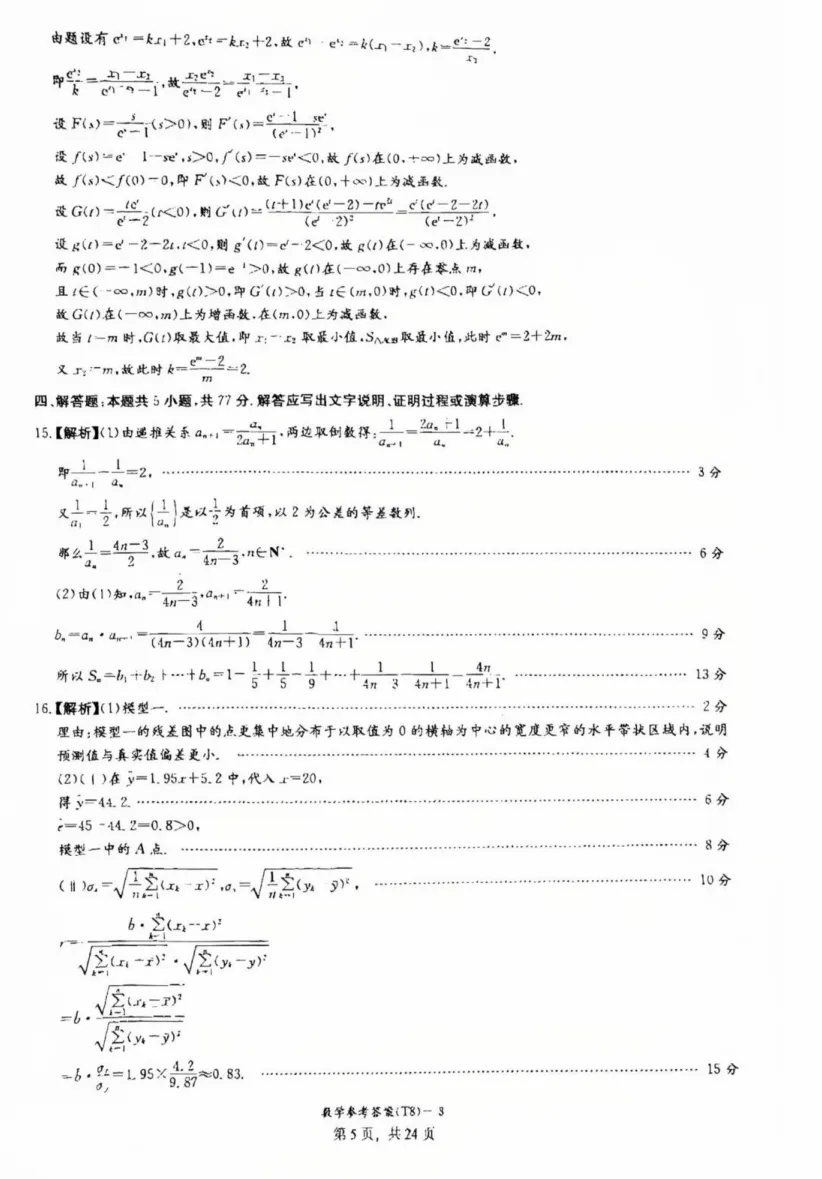 由题设有 e^{x₁}=kx₁+2,e^{x₂}=kx₂+2,故 e^{x₁}-e^{x₂}=k(x₁-x₂),k=\frac{e^{x₂}-2}{x₂}.
即\frac{e^{x₂}}{k}=\frac{x₁-x₂}{e^{x₁-x₂}-1},故\frac{x₂e^{x₂}}{e^{x₂}-2}=\frac{x₁-x₂}{e^{x₁-x₂}-1},
设 F(s)=\frac{s}{e^s-1}(s>0),则 F′(s)=\frac{e^s-1-se^s}{(e^s-1)²},
设 f(s)=e^s-1-se^s,s>0,f′(s)=-se^s<0,故 f(s)在(0,+∞)上为减函数,
故 f(s)<f(0)=0,即 F′(s)<0,故 F(s)在(0,+∞)上为减函数.
设 G(t)=\frac{te^t}{e^t-2}(t<0),则 G′(t)=\frac{(t+1)e^t(e^t-2)-te^{2t}}{(e^t-2)²}=\frac{e^t(e^t-2-2t)}{(e^t-2)²},
设 g(t)=e^t-2-2t,t<0,则 g′(t)=e^t-2<0,故 g(t)在(-∞,0)上为减函数,
而 g(0)=-1<0,g(-1)=e^{-1}>0,故 g(t)在(-∞,0)上存在零点 m,
且 t∈(-∞,m)时,g(t)>0,即 G′(t)>0,当 t∈(m,0)时,g(t)<0,即 G′(t)<0,
故 G(t)在(-∞,m)上为增函数,在(m,0)上为减函数,
故当 t=m 时,G(t)取最大值,即 x₁-x₂ 取最小值,S取最小值,此时 e^m=2+2m,
又 x₂=m,故此时 k=\frac{e^m-2}{m}=2.
四、解答题:本题共 5 小题,共 77 分.解答应写出文字说明、证明过程或演算步骤.
15.【解析】(1)由递推关系 a_{n+1}=\frac{a_n}{2a_n+1},两边取倒数得:\frac{1}{a_{n+1}}=\frac{2a_n+1}{a_n}=2+\frac{1}{a_n}.
即\frac{1}{a_{n+1}}-\frac{1}{a_n}=2, …… 3 分
又\frac{1}{a₁}=\frac{1}{2},所以{\frac{1}{a_n}}是以\frac{1}{2}为首项,以 2 为公差的等差数列.
那么\frac{1}{a_n}=\frac{4n-3}{2},故 a_n=\frac{2}{4n-3},n∈N*. …… 6 分
(2)由(1)知,a_n=\frac{2}{4n-3},a_{n+1}=\frac{2}{4n+1}.
b_n=a_n·a_{n+1}=\frac{4}{(4n-3)(4n+1)}=\frac{1}{4n-3}-\frac{1}{4n+1}. …… 9 分
所以 S_n=b₁+b₂+⋯+b_n=1-\frac{1}{5}+\frac{1}{5}-\frac{1}{9}+⋯+\frac{1}{4n-3}-\frac{1}{4n+1}=\frac{4n}{4n+1}. …… 13 分
16.【解析】(1)模型一. …… 2 分
理由:模型一的残差图中的点更集中地分布于以取值为 0 的横轴为中心的宽度更窄的水平带状区域内,说明
预测值与真实值偏差更小. …… 4 分
(2)(Ⅰ)在 ŷ=1.95x+5.2 中,代入 x=20,
得 ŷ=44.2. …… 6 分
ê=45-44.2=0.8>0,
模型一中的 A 点. …… 8 分
(Ⅱ)σ_x=\sqrt{\frac{1}{n}\sum_{k=1}^{n}(x_k-x̄)²},σ_y=\sqrt{\frac{1}{n}\sum_{k=1}^{n}(y_k-ȳ)²}, …… 10 分
r=\frac{b·\sum_{k=1}^{n}(x_k-x̄)²}{\sqrt{\sum_{k=1}^{n}(x_k-x̄)²}·\sqrt{\sum_{k=1}^{n}(y_k-ȳ)²}}
=b·\frac{\sqrt{\sum_{k=1}^{n}(x_k-x̄)²}}{\sqrt{\sum_{k=1}^{n}(y_k-ȳ)²}}
=b·\frac{σ_x}{σ_y}=1.95×\frac{4.2}{9.87}≈0.83. …… 15 分
数学参考答案(T8)-3
第 5 页, 共 24 页